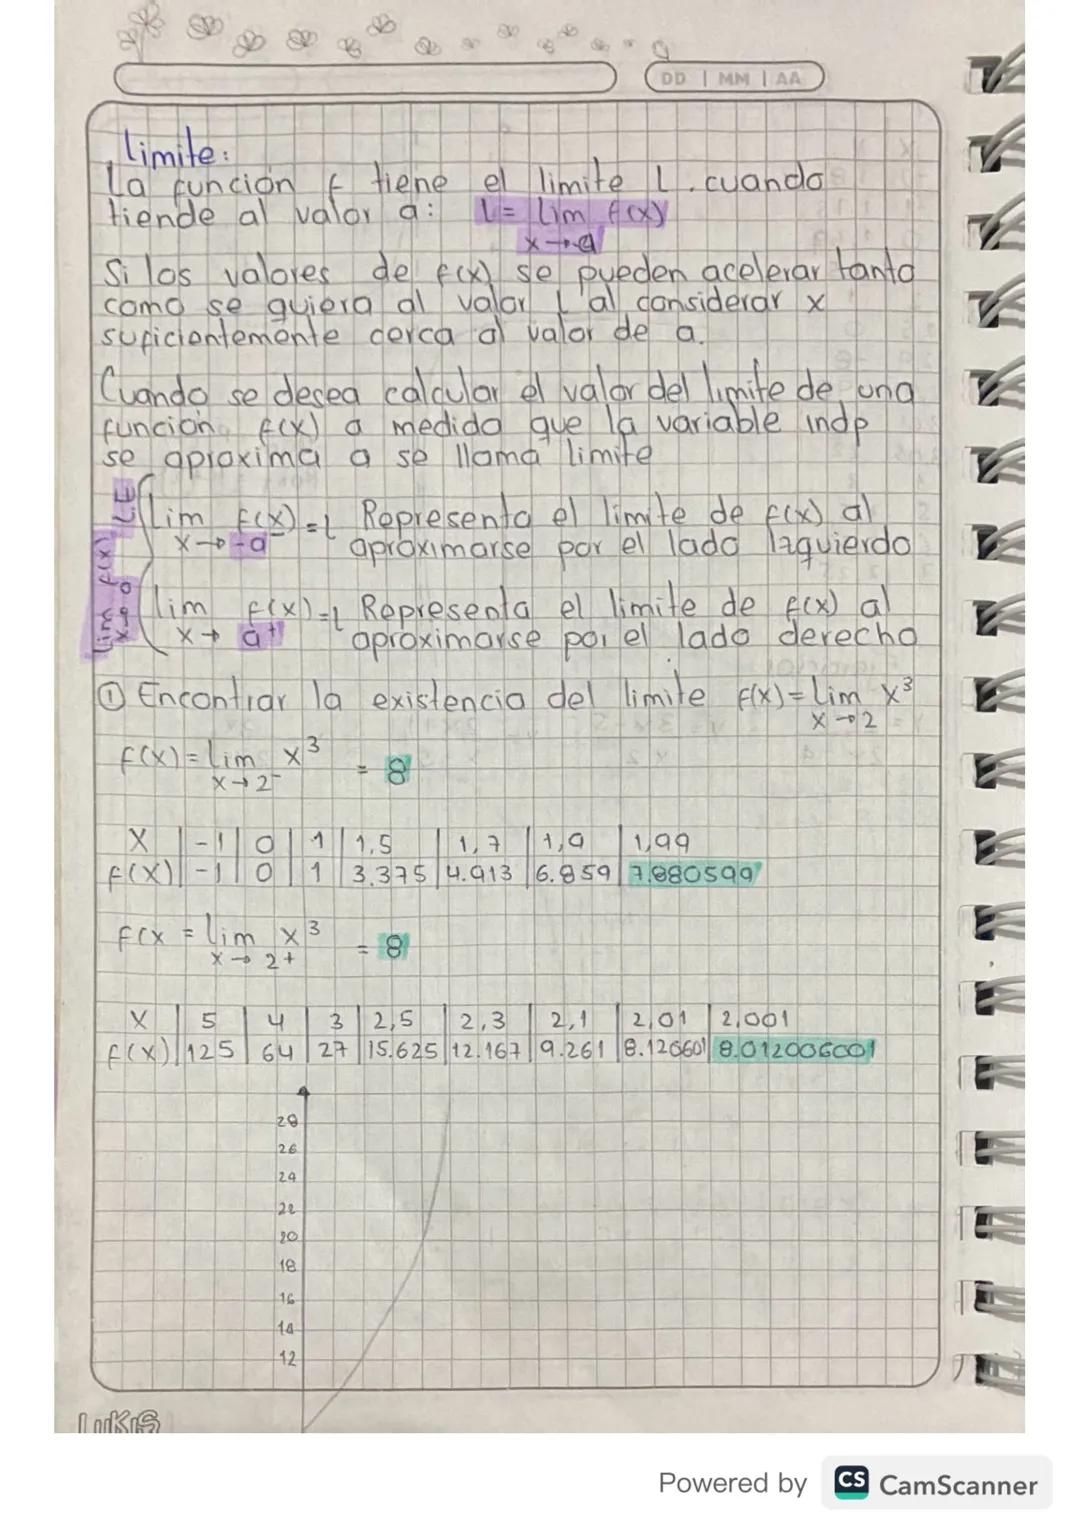 DD | MM | AA
Limite:
La función f tiene el limite L. cuando
tiende al valor a: L= lim f(x)
x→a
Si los valores de f(x) se pueden acelerar tanto
como se quiera al valor L al considerar x
suficientemente cerca al valor de a.
Cuando se desea calcular el valor del limite de una
función f(x) a medida que la variable indp
se aproxima a se llama limite
lim f(x)
x→a
lim f(x)=L Representa el limite de f(x) al
x→-a⁻ aproximarse por el lado Izquierdo
lim f(x)=L Representa el limite de f(x) al
x→ a⁺ aproximarse por el lado derecho
① Encontrar la existencia del limite f(x)=lim x³
x→2
f(x)=lim x³ = 8
x→2⁻
X | -1 | 0 | 1 | 1,5 | 1,7 | 1,9 | 1,99
f(x) | -1 | 0 | 1 | 3.375 | 4.913 | 6.859 | 7.880599
f(x = lim x³ = 8
x→ 2+
X | 5 | 4 | 3 | 2,5 | 2,3 | 2,1 | 2,01 | 2,001
f(x) | 125 | 64 | 27 | 15.625 | 12.167 | 9.261 | 8.120601 | 8.012006001
28
26
24
22
20
18
16
14
12
LUKIS
Powered by CS CamScanner